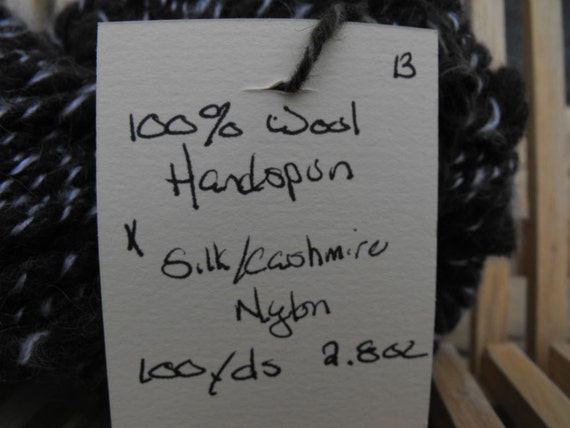 B
100% Wool
Handspun
X Silk/Cashmire
Nylon
100yds 2.8oz